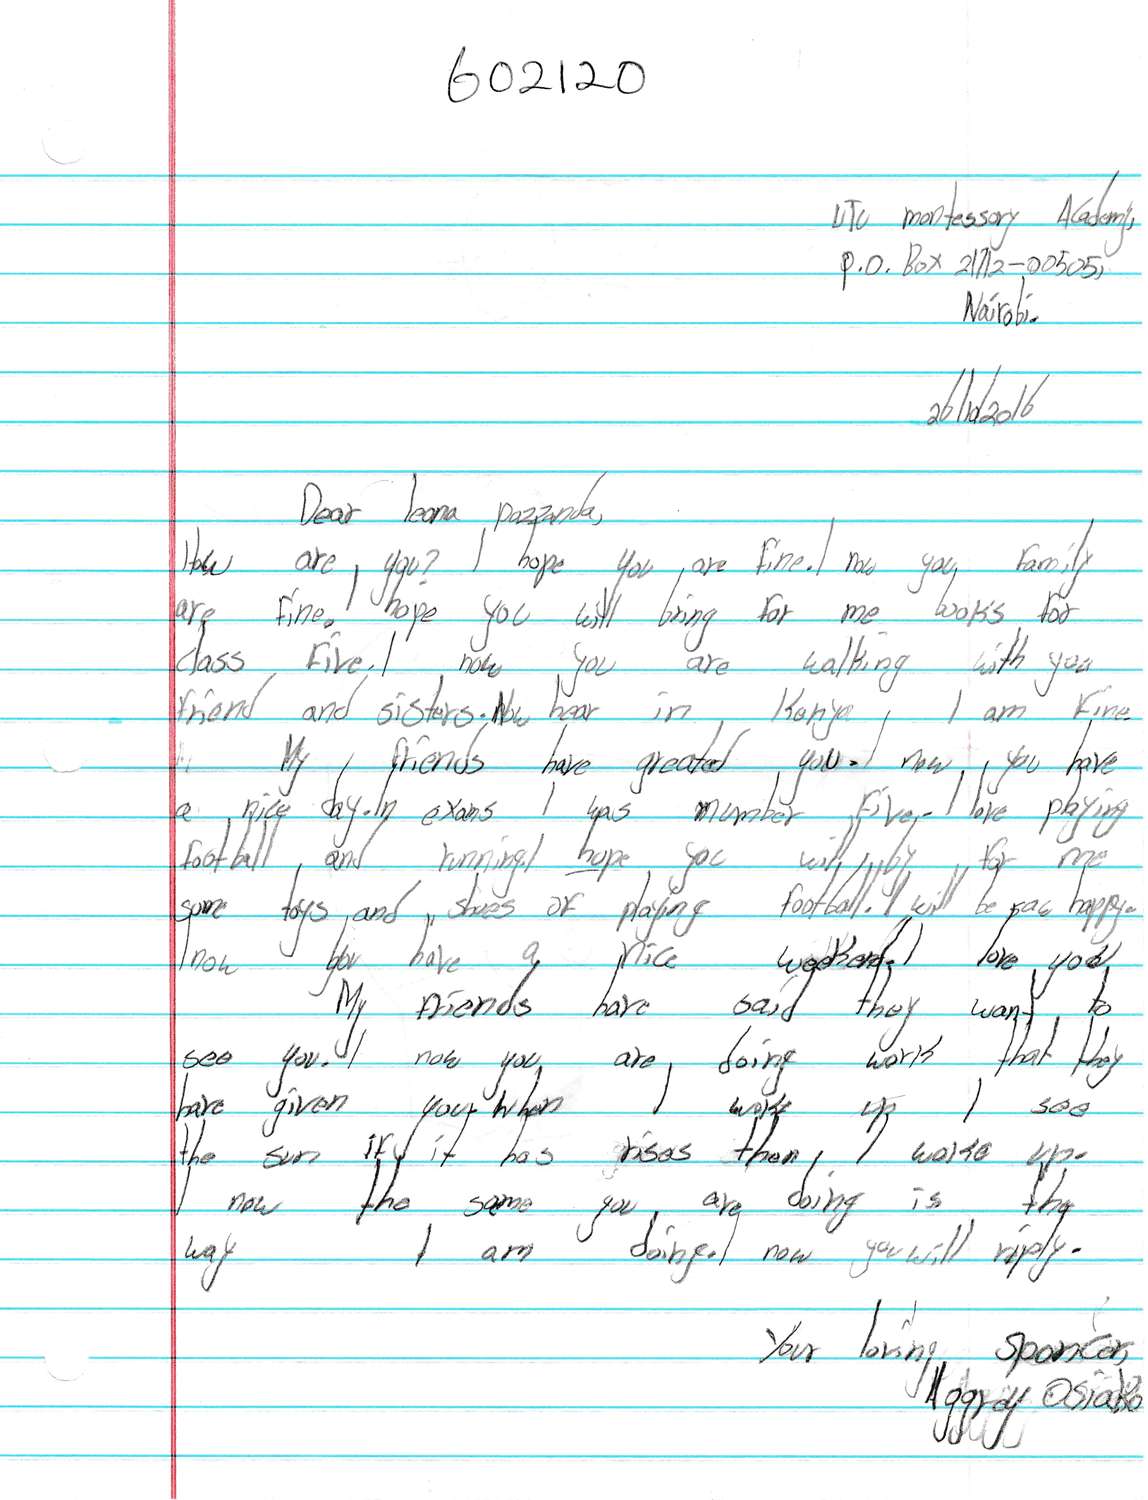 602120
UTU montessory Academy,
P.O. Box 21712-00505,
Nairobi.
26/10/2016
Dear leana pazzanda,
How are you? I hope you are fine. I now you family
are fine. I hope you will bring for me works for
class five. I now you are walking with you
friend and sisters. Now hear in Kenya, I am fine.
My friends have greated you. I now you have
a nice day. In exams I was number five. I love playing
football and running. I hope you will by for me
some toys and shoes of playing football. I will be happy.
I now you have a nice weekend. I love you
My friends have said they want to
see you. I now you are doing work that they
have given you. When I wake up I see
the sun if it has rises then, I wake up.
I now the same you are doing is the
way I am doing. I now you will riply.
Your loving sponcer,
Aggrey Osiako